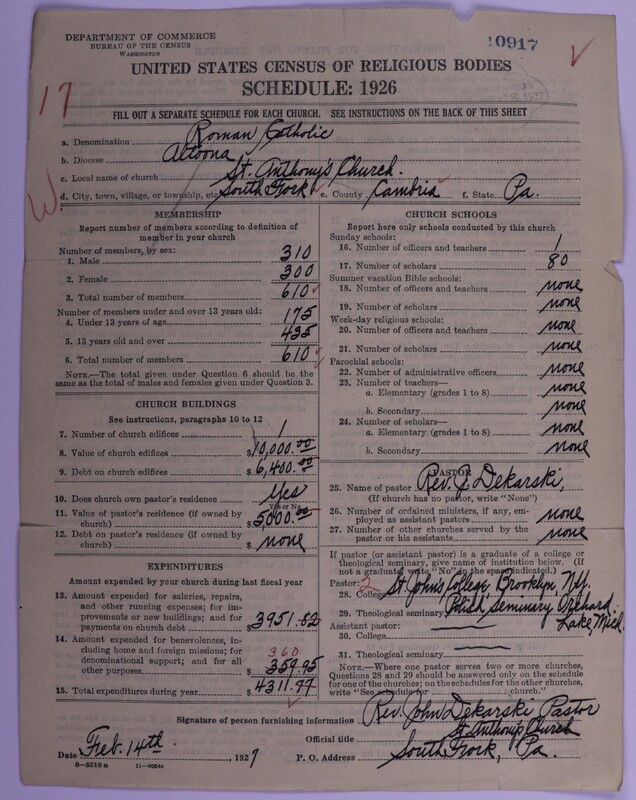 DEPARTMENT OF COMMERCE
BUREAU OF THE CENSUS
WASHINGTON
10917
17
UNITED STATES CENSUS OF RELIGIOUS BODIES
SCHEDULE: 1926
FILL OUT A SEPARATE SCHEDULE FOR EACH CHURCH. SEE INSTRUCTIONS ON THE BACK OF THIS SHEET
a. Denomination Roman Catholic
b. Diocese Altoona
c. Local name of church St. Anthony's Church.
d. City, town, village, or township, etc. South Fork e. County Cambria f. State Pa.
W
MEMBERSHIP
Report number of members according to definition of member in your church
Number of members, by sex:
1. Male 310
2. Female 300
3. Total number of members 610
Number of members under and over 13 years old:
4. Under 13 years of age 175
5. 13 years old and over 435
6. Total number of members 610
NOTE.—The total given under Question 6 should be the same as the total of males and females given under Question 3.
CHURCH BUILDINGS
See instructions, paragraphs 10 to 12
7. Number of church edifices 1
8. Value of church edifices $10,000.00
9. Debt on church edifices $6,400.00
10. Does church own pastor's residence Yes
Yes or No
11. Value of pastor's residence (if owned by church) $5,000.00
12. Debt on pastor's residence (if owned by church) $ none
EXPENDITURES
Amount expended by your church during last fiscal year
13. Amount expended for salaries, repairs, and other running expenses; for improvements or new buildings; and for payments on church debt $3951.82
14. Amount expended for benevolences, including home and foreign missions; for denominational support; and for all other purposes $359.95
360
15. Total expenditures during year $4311.77
CHURCH SCHOOLS
Report here only schools conducted by this church
Sunday schools:
16. Number of officers and teachers 1
17. Number of scholars 80
Summer vacation Bible schools:
18. Number of officers and teachers none
19. Number of scholars none
Week-day religious schools:
20. Number of officers and teachers none
21. Number of scholars none
Parochial schools:
22. Number of administrative officers none
23. Number of teachers—
a. Elementary (grades 1 to 8) none
b. Secondary none
24. Number of scholars—
a. Elementary (grades 1 to 8) none
b. Secondary none
PASTOR
25. Name of pastor Rev. J. Dekarski,
(If church has no pastor, write "None")
26. Number of ordained ministers, if any, employed as assistant pastors none
27. Number of other churches served by the pastor or his assistants none
If pastor (or assistant pastor) is a graduate of a college or theological seminary, give name of institution below. (If not a graduate, write "No" in the space indicated.)
Pastor: 2
28. College St. John's College, Brooklyn, N.Y.
29. Theological seminary Polish Seminary Orchard Lake, Mich.
Assistant pastor:
30. College
31. Theological seminary
NOTE.—Where one pastor serves two or more churches, Questions 28 and 29 should be answered only on the schedule for one of the churches; on the schedules for the other churches, write "See schedule for church."
Signature of person furnishing information Rev. John Dekarski Pastor
Official title St. Anthony's Church
Date Feb. 14th, 1927 P. O. Address South Fork, Pa.
8-5518a 11-9024a